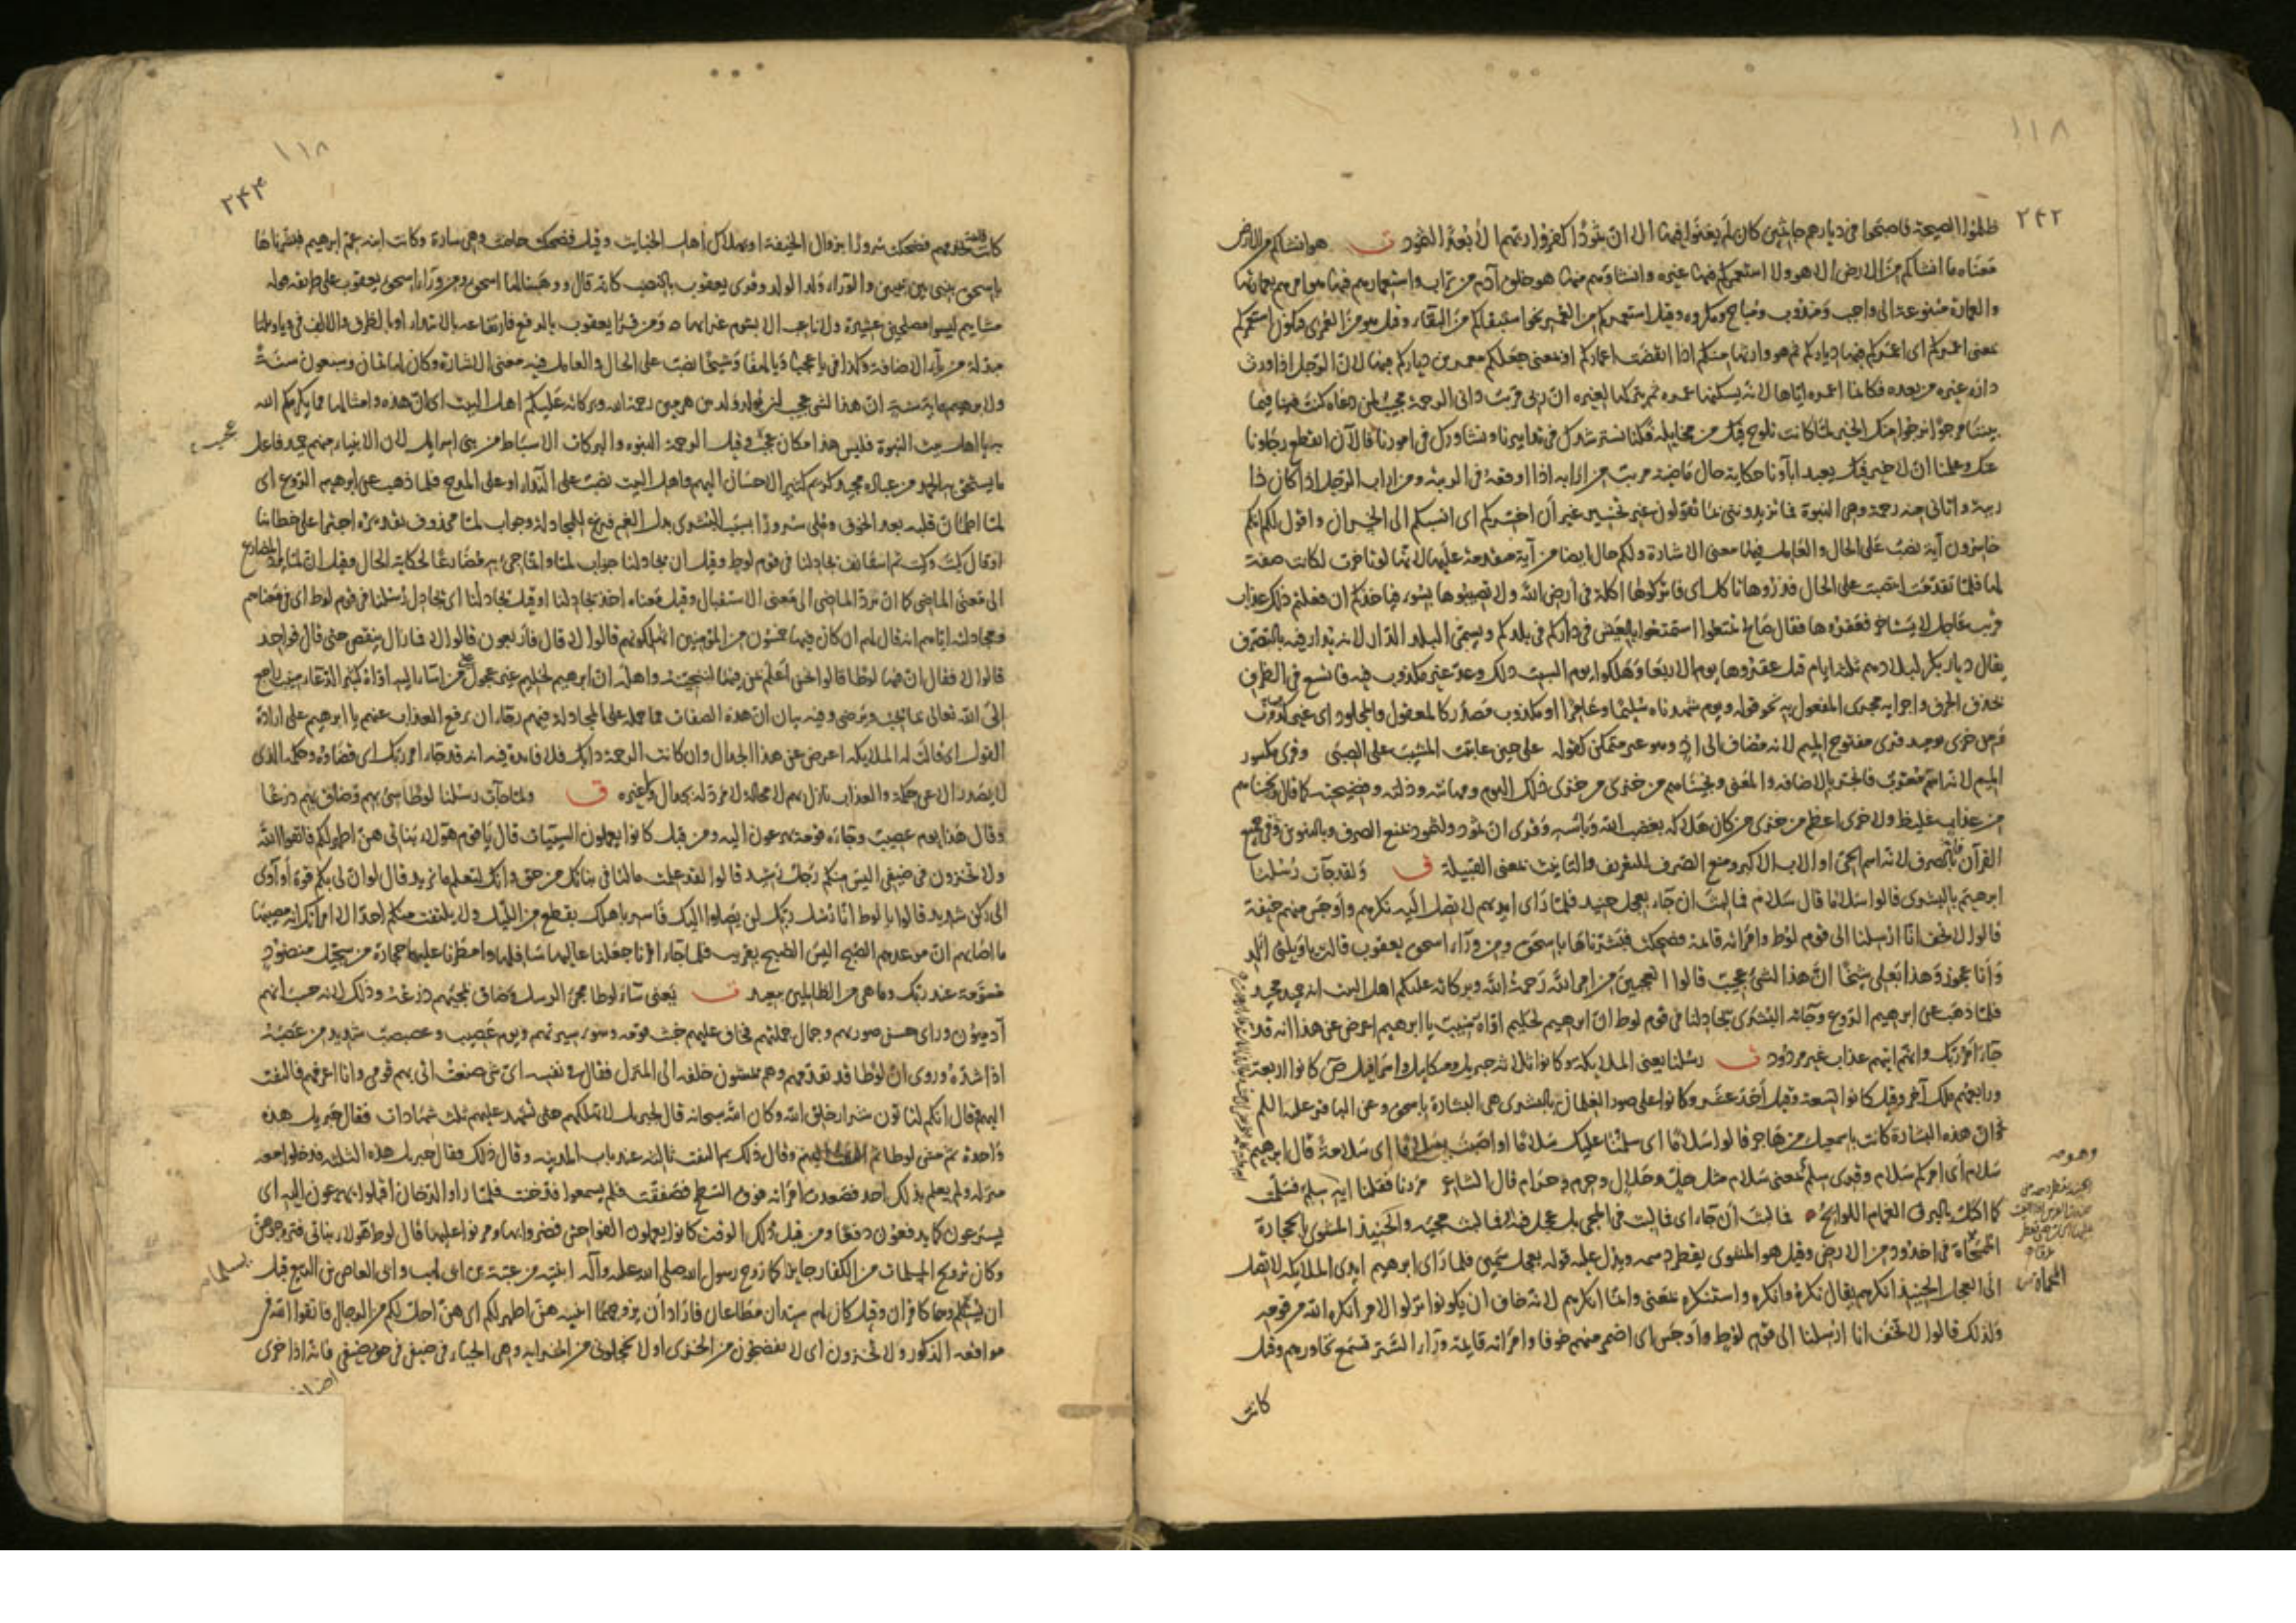 ١١٨
٢٤٢
ظلموا الصيحة فاصبحوا في ديارهم جاثمين كان لم يغنوا فيها الا ان ثمودا كفروا ربهم الا بعدا لثمود ف هو انشاكم من الارض
معناه ما انشاكم من الارض الا هو ولا استعمركم فيها غيره وانشاؤهم منها هو خلق آدم من تراب واستعمارهم فيها هو امرهم بعمارتها
والعمارة متنوعة الى واجب ومندوب ومباح ومكروه وقيل استعمركم من العمر نحو استبقاكم من البقاء وقيل هو من العمرى فيكون استعمركم
بمعنى اعمركم اى اعمركم فيها دياركم ثم هو وارثها منكم اذا انقضت اعماركم او بمعنى جعلكم معمرين دياركم فيها لان الرجل اذا ورث
داره غيره من بعده فكانما اعمره اياها لانه يسكنها عمره ثم يتركها لغيره ان ربى قريب دانى الرحمة مجيب لمن دعاه كنت فينا فيما
بيننا مرجوا نرجوا منك الخير لما كانت تلوح فيك من مخايله فكنا نسترشدك في تدابيرنا ونشاورك في امورنا فالآن انقطع رجاؤنا
عنك وعلمنا ان لا خير فيك يعبد آباؤنا حكاية حال ماضية مريب من ارابه اذا اوقعه في الريبة ومن اراب الرجل اذا كان ذا
ريبة وآتانى منه رحمة وهي النبوة فما تزيدوننى بما تقولون غير تخسير غير أن اخسركم اى انسبكم الى الخسران واقول لكم انكم
خاسرون آية نصب على الحال والعامل فيها معنى الاشارة ولكم حال ايضا من آية متقدمة عليها لانها لو تاخرت لكانت صفة
لها فلما تقدمت انتصبت على الحال فذروها تاكل اى فاتركوها اكلة في أرض الله ولا تمسوها بسوء فياخذكم ان فعلتم ذلك عذاب
قريب عاجل لا يستاخر فعقروها فقال صالح تمتعوا استمتعوا بالعيش في داركم في بلدكم ويسمى البلد الدار لانه يدار فيه بالتصرف
يقال ديار بكر لبلادهم ثلثة ايام قيل عقروها يوم الاربعا وهلكوا يوم السبت ذلك وعد غير مكذوب فيه فاتسع في الظرف
بحذف الحرف واجرائه مجرى المفعول به نحو قوله ويوم شهدناه سليما وعامرا او مكذوب مصدر كالمعقول والمجلود اى غير كذب
ومن خزى يومئذ قرئ مفتوح الميم لانه مضاف الى اذ وهو غير متمكن كقوله على حين عاتبت المشيب على الصبى وقرئ مكسور
الميم لانه اسم معرب فانجر بالاضافة والمعنى ونجيناهم من خزى من خزى ذلك اليوم ومهانته وذلته وفضيحته كما قال ونجيناهم
من عذاب غليظ ولا خزى اعظم من خزى من كان هلاكه بغضب الله وبأسه وقرئ ان ثمود ولثمود بمنع الصرف وبالتنوين وفي جميع
القرآن فالصرف لانه اسم الحى او الاب الاكبر ومنع الصرف للتعريف والتانيث بمعنى القبيلة ف ولقد جآت رسلنا
ابرهيم بالبشرى قالوا سلاما قال سلام فما لبث ان جاء بعجل حنيذ فلما رأى ايديهم لا تصل اليه نكرهم وأوجس منهم خيفة
قالوا لا تخف انا ارسلنا الى قوم لوط وامرأته قائمة فضحكت فبشرناها باسحق ومن وراء اسحق يعقوب قالت ياويلتى أألد
وأنا عجوز وهذا بعلى شيخا ان هذا لشئ عجيب قالوا اتعجبين من امر الله رحمة الله وبركاته عليكم اهل البيت انه حميد مجيد
فلما ذهب عن ابرهيم الروع وجائته البشرى يجادلنا في قوم لوط ان ابرهيم لحليم اواه منيب يا ابرهيم اعرض عن هذا انه قد
جاء امر ربك وانهم اتيهم عذاب غير مردود ف رسلنا يعنى الملايكة وكانوا ثلاثة جبريل وميكايل واسرافيل ص كانوا اربعة
ورابعهم ملك آخر وقيل كانوا تسعة وقيل أحد عشر وكانوا على صور الغلمان بالبشرى هي البشارة باسحق وعن الباقر عليه السلم
ان هذه البشارة كانت باسمعيل من هاجر قالوا سلاما اى سلمنا عليك سلاما او اصبت سلاما اى سلامة قال ابرهيم
سلام أى امركم سلام وقرئ سلم بمعنى سلام مثل حل وحلال وحرم وحرام قال الشاعر مررنا فقلنا ايه سلم فسلمت
كما اكتل بالبرق الغمام اللوائح ه فما لبث أن جاء اى فما لبث في المجئ بل عجل فيه او فما لبث مجيئه والحنيذ المشوى بالحجارة
المحماة في اخدود من الارض وقيل هو المشوى يقطر دسمه ويدل عليه قوله بعجل سمين فلما رأى ابرهيم ايدى الملايكة لا تصل
الى العجل الحنيذ انكرهم يقال نكره وأنكره واستنكره بمعنى وانما انكرهم لانه خاف ان يكونوا نزلوا لامر انكره الله من قومه
ولذلك قالوا لا تخف انا ارسلنا الى قوم لوط وأوجس اى اضمر منهم خوفا وامرأته قايمة وراء الستر تسمع تحاورهم وقيل
كانت
المحماة
١١٨
٢٤٤
كانت قائمة تخدمهم فضحكت سرورا بزوال الخيفة او بهلاك أهل الخبايث وقيل فضحكت حاضت وهي سارة وكانت ابنة عم ابرهيم فبشرناها
باسحق بنبى بين نبيين والوراء ولد الولد وقرئ يعقوب بالنصب كانه قال ووهبنا لها اسحق ومن وراء اسحق يعقوب على طريقة قوله
مشايم ليسوا مصلحين عشيرة ولا ناعب الا بشوم غرابها ه ومن قرأ يعقوب بالرفع فارتفاعه بالابتداء او بالظرف والالف في ياويلتا
مبدلة من ياء الاضافة وكذا في يا عجبا ويا لهفا وشيخا نصب على الحال والعامل فيه معنى الاشارة وكان لها ثمان وتسعون سنة
ولابرهيم ماية سنة ان هذا لشئ عجيب لن يولد ولد من هرمين رحمة الله وبركاته عليكم اهل البيت اى ان هذه وامثالها مما يكرمكم الله
به يا اهل بيت النبوة فليس هذا مكان عجب وقيل الرحمة النبوة والبركات الاسباط من بنى اسرايل لان الانبياء منهم حميد فاعل
ما يستحق به الحمد من عباده مجيد كريم كثير الاحسان اليهم واهل البيت نصب على النداء او على المدح فلما ذهب عن ابرهيم الروع اى
لما اطمأن قلبه بعد الخوف وملى سرورا بسبب البشرى بدل الغم فرغ للمجادلة وجواب لما محذوف تقديره اجترا على خطابنا
او قال كيت وكيت ثم استانف يجادلنا في قوم لوط وقيل ان يجادلنا جواب لما وانما جئ به مضارعا لحكاية الحال وقيل ان لما يرد المضارع
الى معنى الماضى كما ان ترد الماضى الى معنى الاستقبال وقيل معناه اخذ يجادلنا او قيل يجادلنا اى يجادل رسلنا في قوم لوط اى في معناهم
ومجادلته اياهم انه قال لهم ان كان فيها خمسون من المؤمنين اتهلكونهم قالوا لا قال فأربعون قالوا لا فما زال ينقص حتى قال فواحد
قالوا لا فقال ان فيها لوطا قالوا نحن أعلم بمن فيها لننجينه واهله ان ابرهيم لحليم غير عجول على من اساء اليه اواه كثير الدعاء منيب راجع
الى الله تعالى بما يحب ويرضى وفيه بيان ان هذه الصفات مما حمله على المجادلة فيهم رجاء ان يرفع العذاب عنهم يا ابرهيم على ارادة
القول اى قالت له الملايكة اعرض عن هذا الجدال وان كانت الرحمة دابك فلا فايدة فيه انه قد جاء امر ربك اى قضاؤه وحكمه الذى
لا يصدر الا عن حكمة والعذاب نازل بهم لا محالة لا مرد له بجدال ولا غيره ف ولما جآت رسلنا لوطا سئ بهم وضاق بهم ذرعا
وقال هذا يوم عصيب وجاءه قومه يهرعون اليه ومن قبل كانوا يعملون السيئات قال يا قوم هؤلاء بناتى هن اطهر لكم فاتقوا الله
ولا تخزون في ضيفى اليس منكم رجل رشيد قالوا لقد علمت ما لنا في بناتك من حق وانك لتعلم ما نريد قال لو ان لى بكم قوة أو آوى
الى ركن شديد قالوا يا لوط انا رسل ربك لن يصلوا اليك فأسر باهلك بقطع من الليل ولا يلتفت منكم احد الا امرأتك انه مصيبها
ما اصابهم ان موعدهم الصبح اليس الصبح بقريب فلما جاء امرنا جعلنا عاليها سافلها وامطرنا عليها حجارة من سجيل منضود
مسومة عند ربك وما هي من الظالمين ببعيد ف يعنى ساء لوطا مجئ الرسل وضاق بمجيئهم ذرعه وذلك لانه حسب انهم
آدميون ورأى حسن صورهم وجمال جملتهم فخاف عليهم خبث قومه وسوء سيرتهم ويوم عصيب وعصبصب شديد من عصبه
اذا شده وروى ان لوطا قد تقدمهم وهم يمشون خلفه الى المنزل فقال في نفسه اى شئ صنعت اتى بهم قومى وانا اعرفهم فالتفت
اليهم فقال انكم لتاتون شرار خلق الله وكان الله سبحانه قال لجبريل لا تهلكهم حتى تشهد عليهم ثلث شهادات فقال جبريل هذه
واحدة ثم مشى لوط ثم التفت اليهم وقال ذلك ثم التفت ثالثة عند باب المدينة وقال ذلك فقال جبريل هذه الثلثة فدخلوا معه
منزله ولم يعلم بذلك احد فصعدت امرأته فوق السطح فصفقت فلم يسمعوا فدخنت فلما رأوا الدخان أقبلوا يهرعون اليه اى
يسرعون كما يدفعون دفعا ومن قبل ذلك الوقت كانوا يعملون الفواحش فضروا بها ومرنوا عليها قال لوط هؤلاء بناتى فتزوجوهن
وكان تزويج المسلمات من الكفار جايزا كما زوج رسول الله صلى الله عليه وآله ابنتيه من عتبة بن ابى لهب وابى العاص بن الربيع قبل
ان يسلما وهما كافران وقيل كان لهم سيدان مطاعان فأراد أن يزوجهما ابنتيه هن اطهر لكم اى هن احل لكم من الرجال فاتقوا الله في
مواقعه الذكور ولا تخزون اى لا تفضحون من الخزى او لا تخجلونى من الخزاية وهي الحياء في ضيفى في حق ضيفى فانه اذا خزى